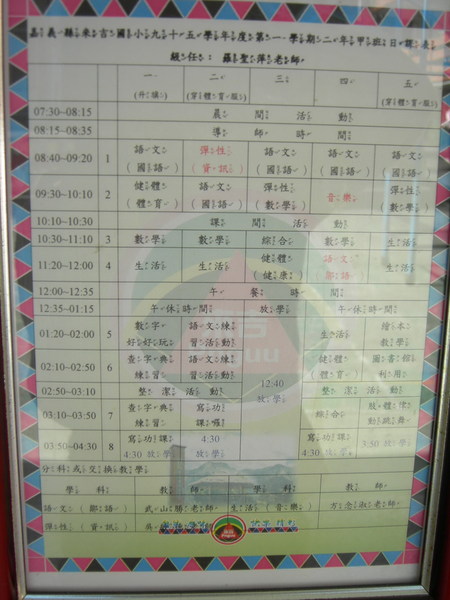 嘉義縣來吉國小九十五學年度第一學期二年甲班日課表
級任：羅聖萍老師
一 二 三 四 五
(升旗) (穿體育服) (穿體育服)
07:30~08:15 晨間活動
08:15~08:35 導師時間
08:40~09:20 1 語文(國語) 彈性(資訊) 語文(國語) 語文(國語) 語文(國語)
09:30~10:10 2 健體(體育) 語文(國語) 彈性(數學) 音樂 彈性(數學)
10:10~10:30 課間活動
10:30~11:10 3 數學 數學 綜合 數學 生活
11:20~12:00 4 生活 生活 健體(健康) 語文(鄒語) 生活
12:00~12:35 午餐時間
12:35~01:15 午休時間 放學 午休時間
01:20~02:00 5 數字好好玩 語文練習活動 12:40放學 生活 繪本教學
02:10~02:50 6 查字典練習 語文練習活動 健體(體育) 圖書館利用
02:50~03:10 整潔活動 整潔活動
03:10~03:50 7 查字典練習 寫功課囉 綜合 肢體律動跳舞
03:50~04:30 8 寫功課 4:30放學 4:30放學 寫功課 4:30放學 3:50放學
分科或交換教學
學科 教師 學科 教師
語文(鄒語) 武山勝老師 生活(音樂) 方念淑老師
彈性(資訊) 吳